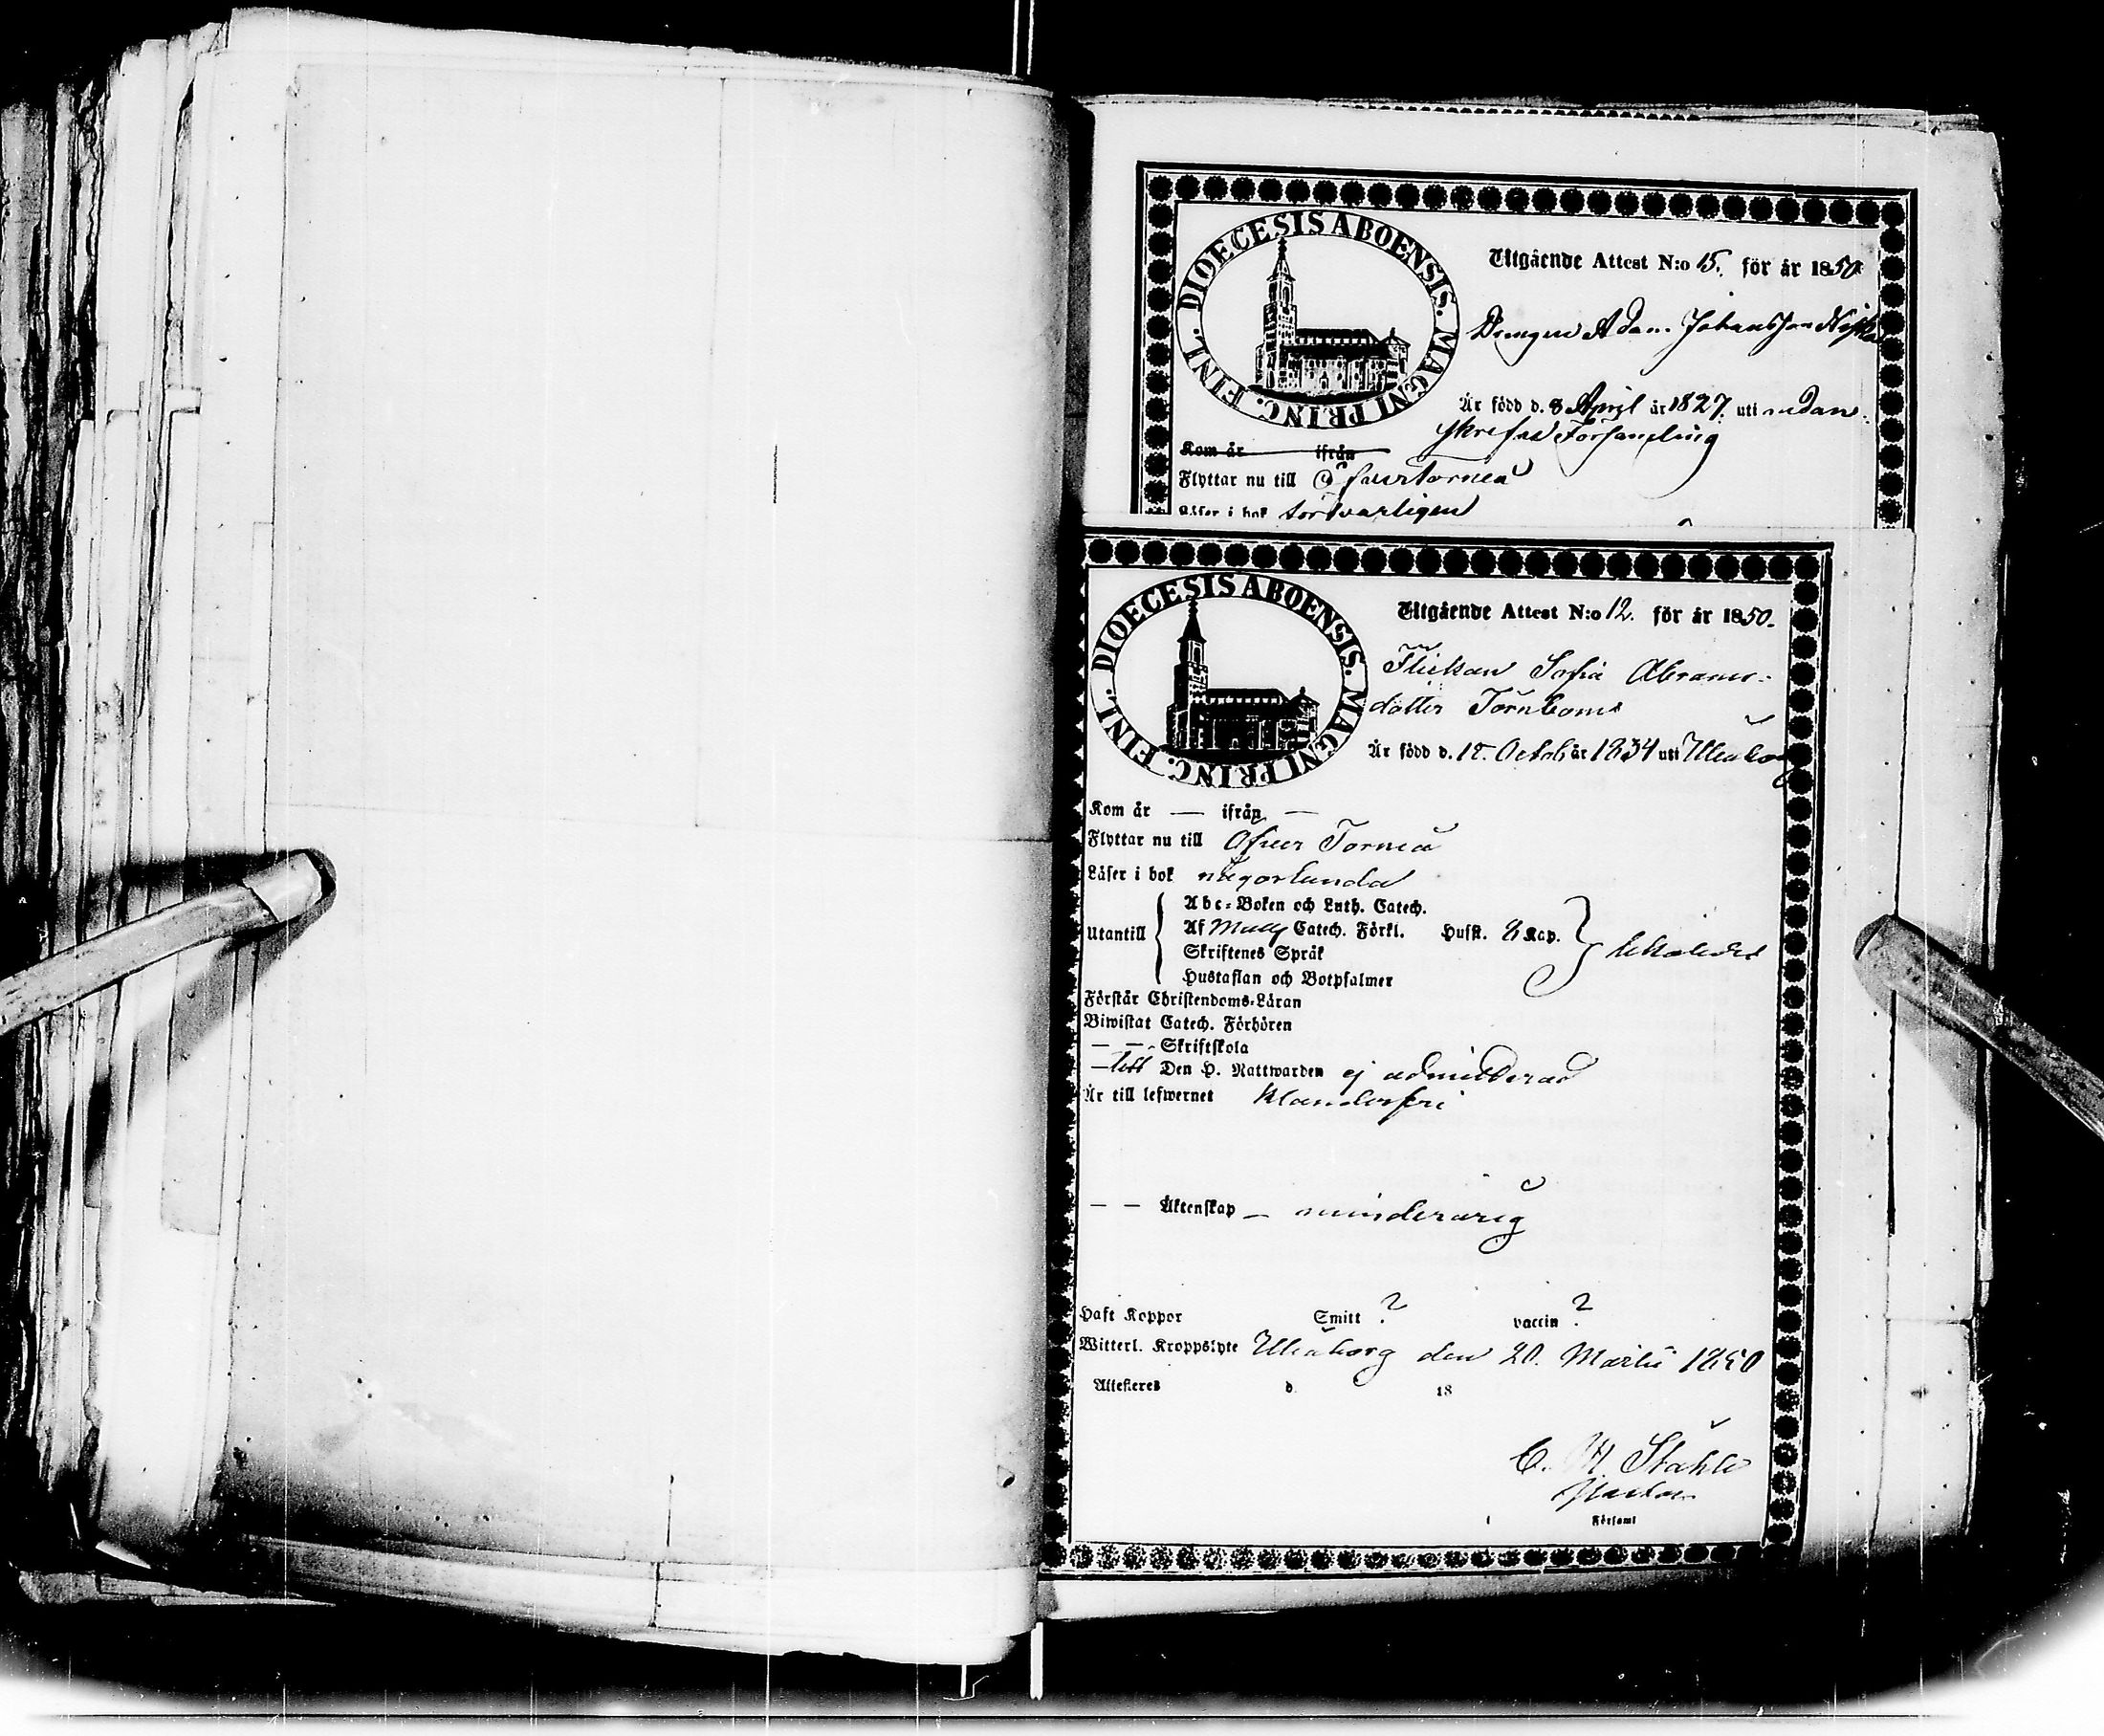 DIOECESIS ABOENSIS. MAGNI PRINC. FINL.
Utgående Attest N:o 15. för år 1850
Drengen Adam Johansson
Är född d. 8 April år 1827. uti nedan-
skrefne Församling
Kom år ifrån
Flyttar nu till Öfvertorneå
Läser i bok försvarligen
DIOECESIS ABOENSIS. MAGNI PRINC. FINL.
Utgående Attest N:o 12. för år 1850.
Flickan Sofia Abrams-
dotter Törnbom
Är född d. 15. Octob år 1834 uti Uleåborg
Kom år — ifrån —
Flyttar nu till Öfver Torneå
Läser i bok någorlunda
Utantill
Abc-Boken och Luth. Catech.
Af Catech. Förkl. Husft. 8 Kap.
Skriftenes Språk
Hustaflan och Botpsalmer
Förstår Christendoms-Läran
Biwistat Catech. Förhören
— — Skriftskola
— till Den H. Nattwarden ej admitterad
Är till lefwernet klanderfri
— — Äktenskap — minderårig
Haft Koppor Smitt ? vaccin ?
Witterl. Kroppslyte Uleåborg den 20. Martii 1850
Attesteres d. 18
C. M. Ståhle
i Församl